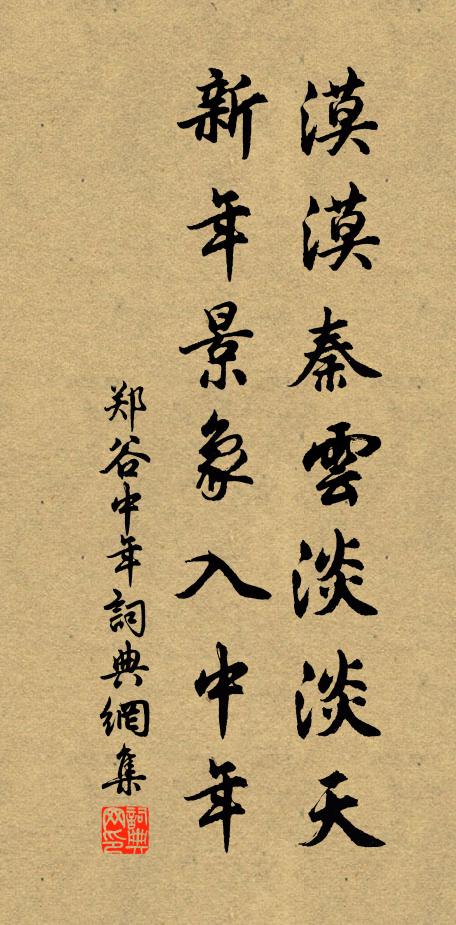 漠漠秦雲淡淡天
新年景象入中年
郑谷中年詞典網集
詞典网印